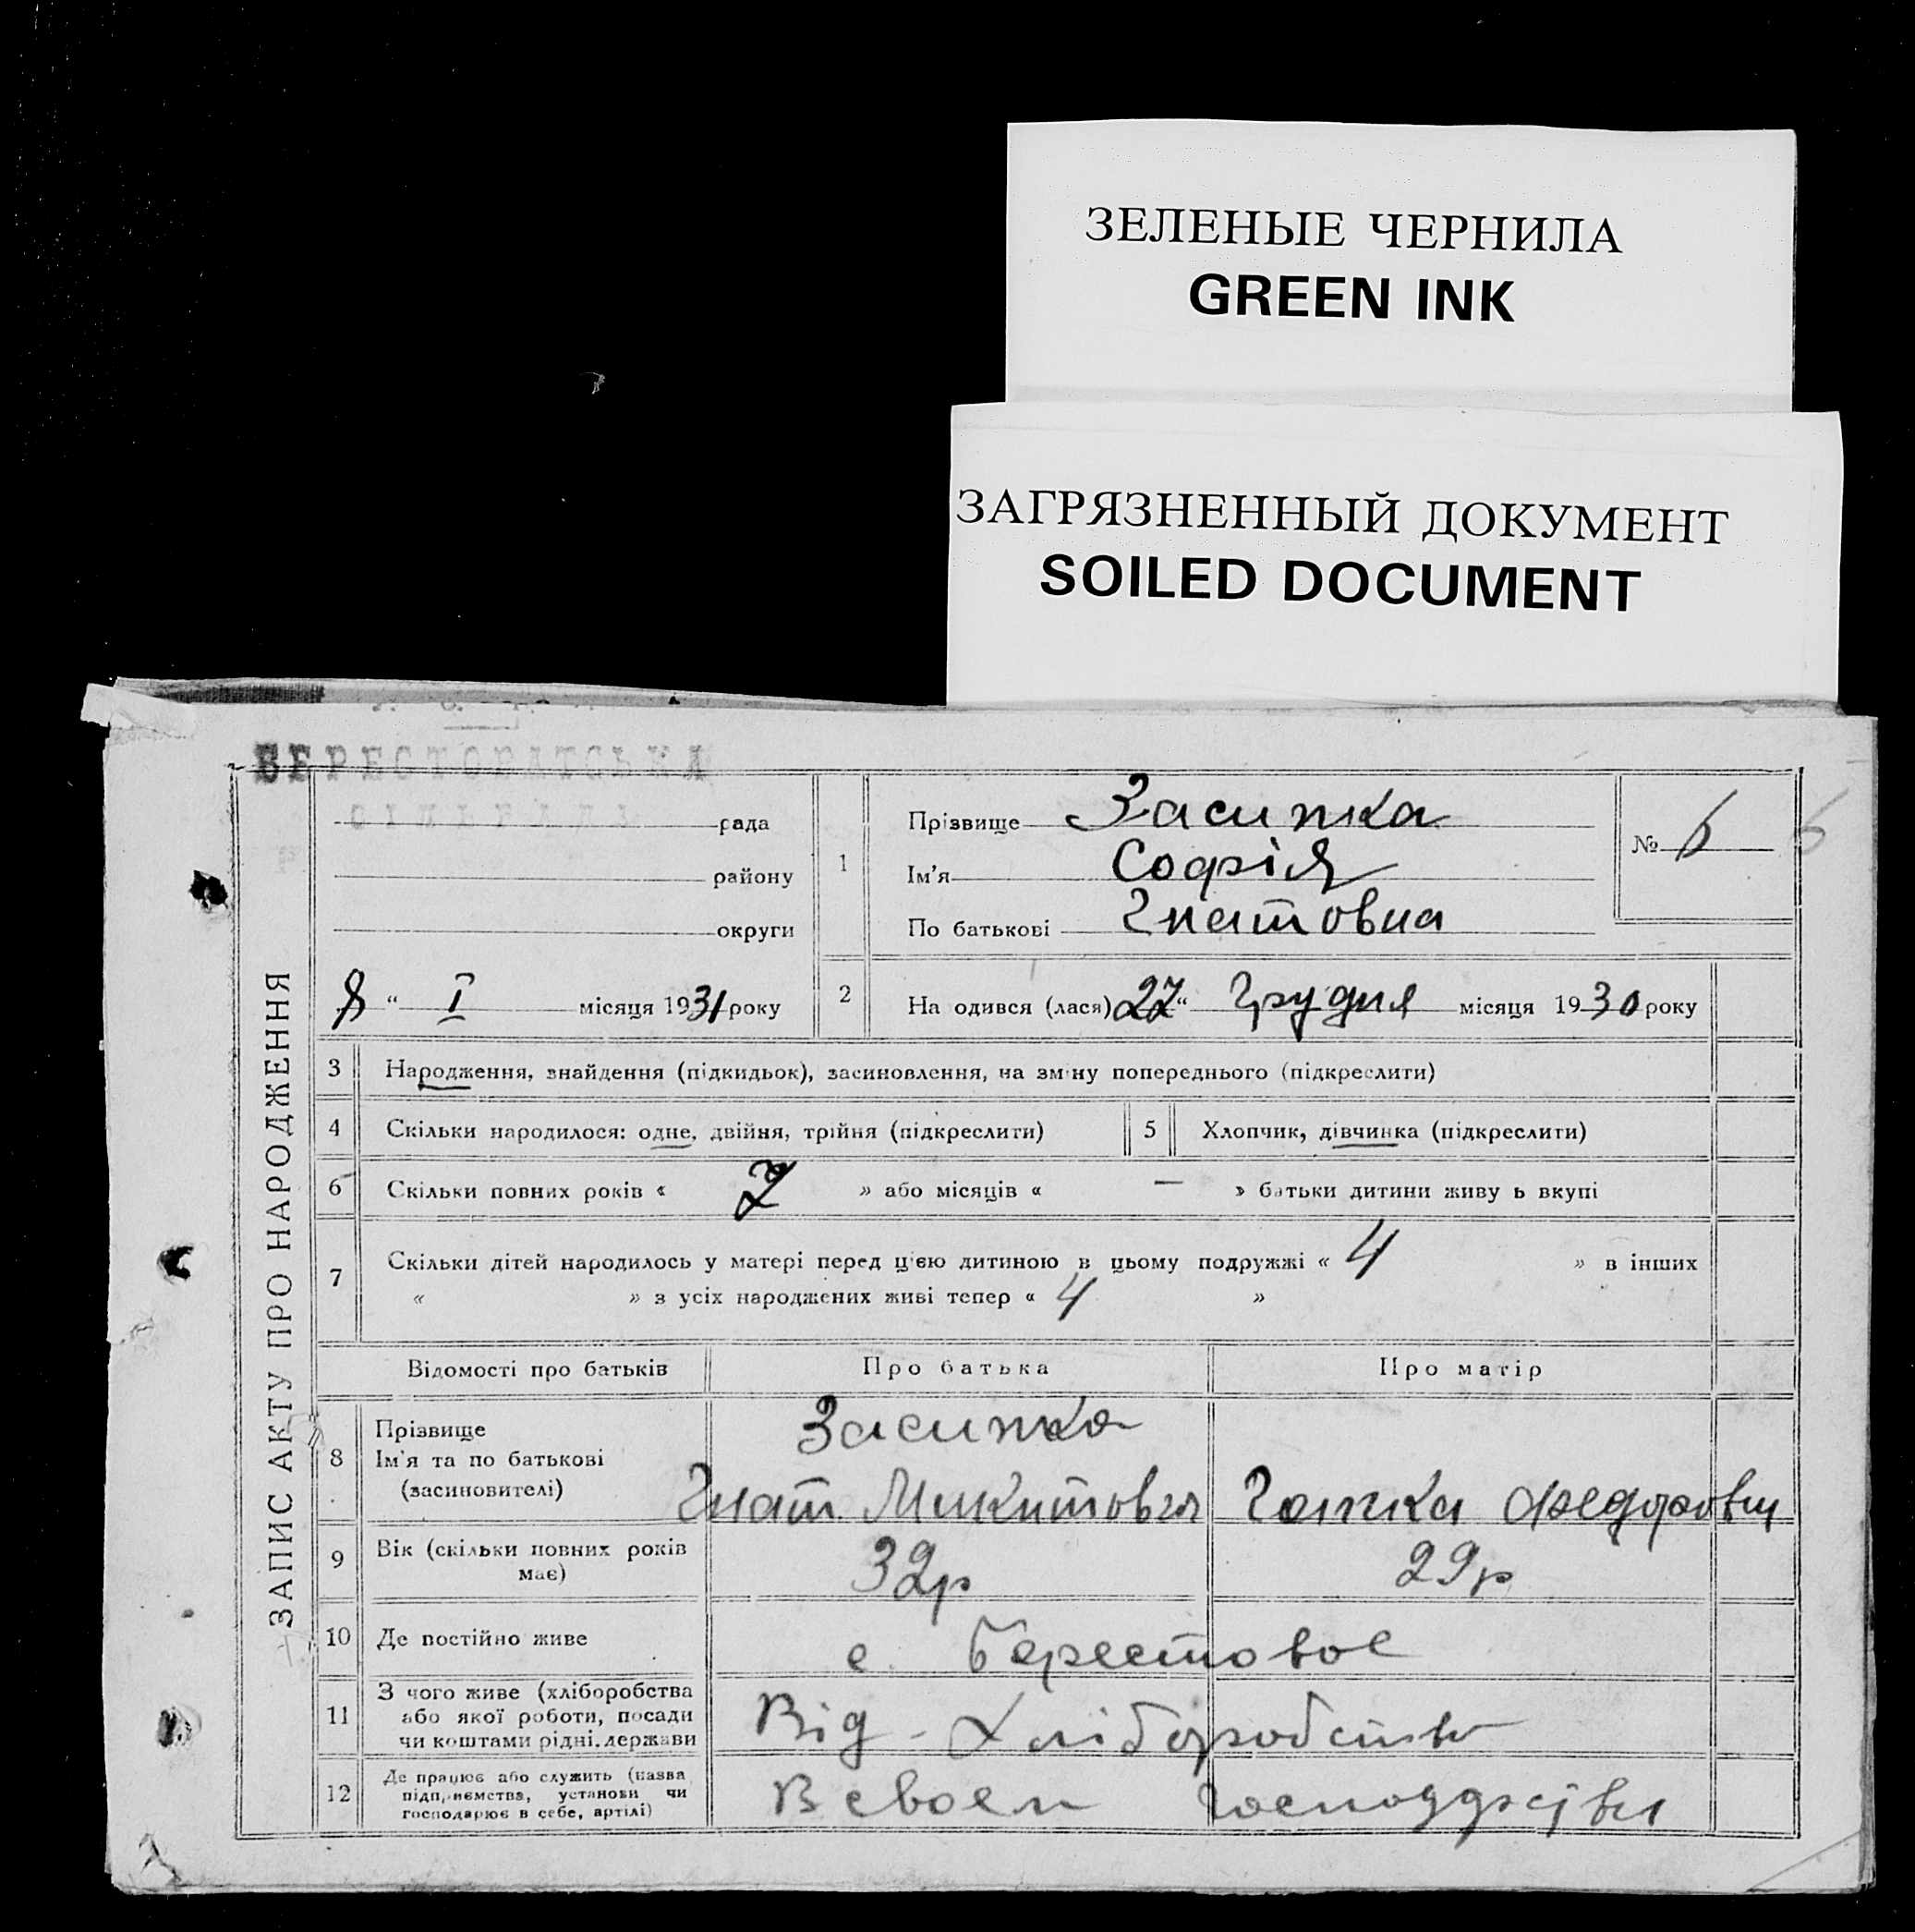 ЗЕЛЕНЫЕ ЧЕРНИЛА
GREEN INK
ЗАГРЯЗНЕННЫЙ ДОКУМЕНТ
SOILED DOCUMENT
БЕРЕСТОВАТСЬКА
СІЛЬРАДА
рада
району
округи
8 “ I місяця 1931 року
ЗАПИС АКТУ ПРО НАРОДЖЕННЯ
1 Прізвище Засипка
Ім'я Софія
По батькові Гнатовна
№ 6 6
2 На одився (лася) 27 “ Грудня місяця 1930 року
3 Народження, знайдення (підкидьок), засиновлення, на зміну попереднього (підкреслити)
4 Скільки народилося: одне, двійня, трійня (підкреслити) 5 Хлопчик, дівчинка (підкреслити)
6 Скільки повних років « » або місяців « — » батьки дитини живу ь вкупі
7 Скільки дітей народилось у матері перед цією дитиною в цьому подружжі « 4 » в інших
« » з усіх народжених живі тепер « 4 »
Відомості про батьків Про батька Про матір
8 Прізвище
Ім'я та по батькові
(засиновителі)
Засипка
Гнат Микитович Гапка Федоровн
9 Вік (скільки повних років
має) 32р 29р
10 Де постійно живе с. Берестовое
11 З чого живе (хліборобства
або якої роботи, посади
чи коштами рідні, держави
Від - Хліборобства
12 Де працює або служить (назва
підприємства, установи чи
господарює в себе, артілі)
В своем